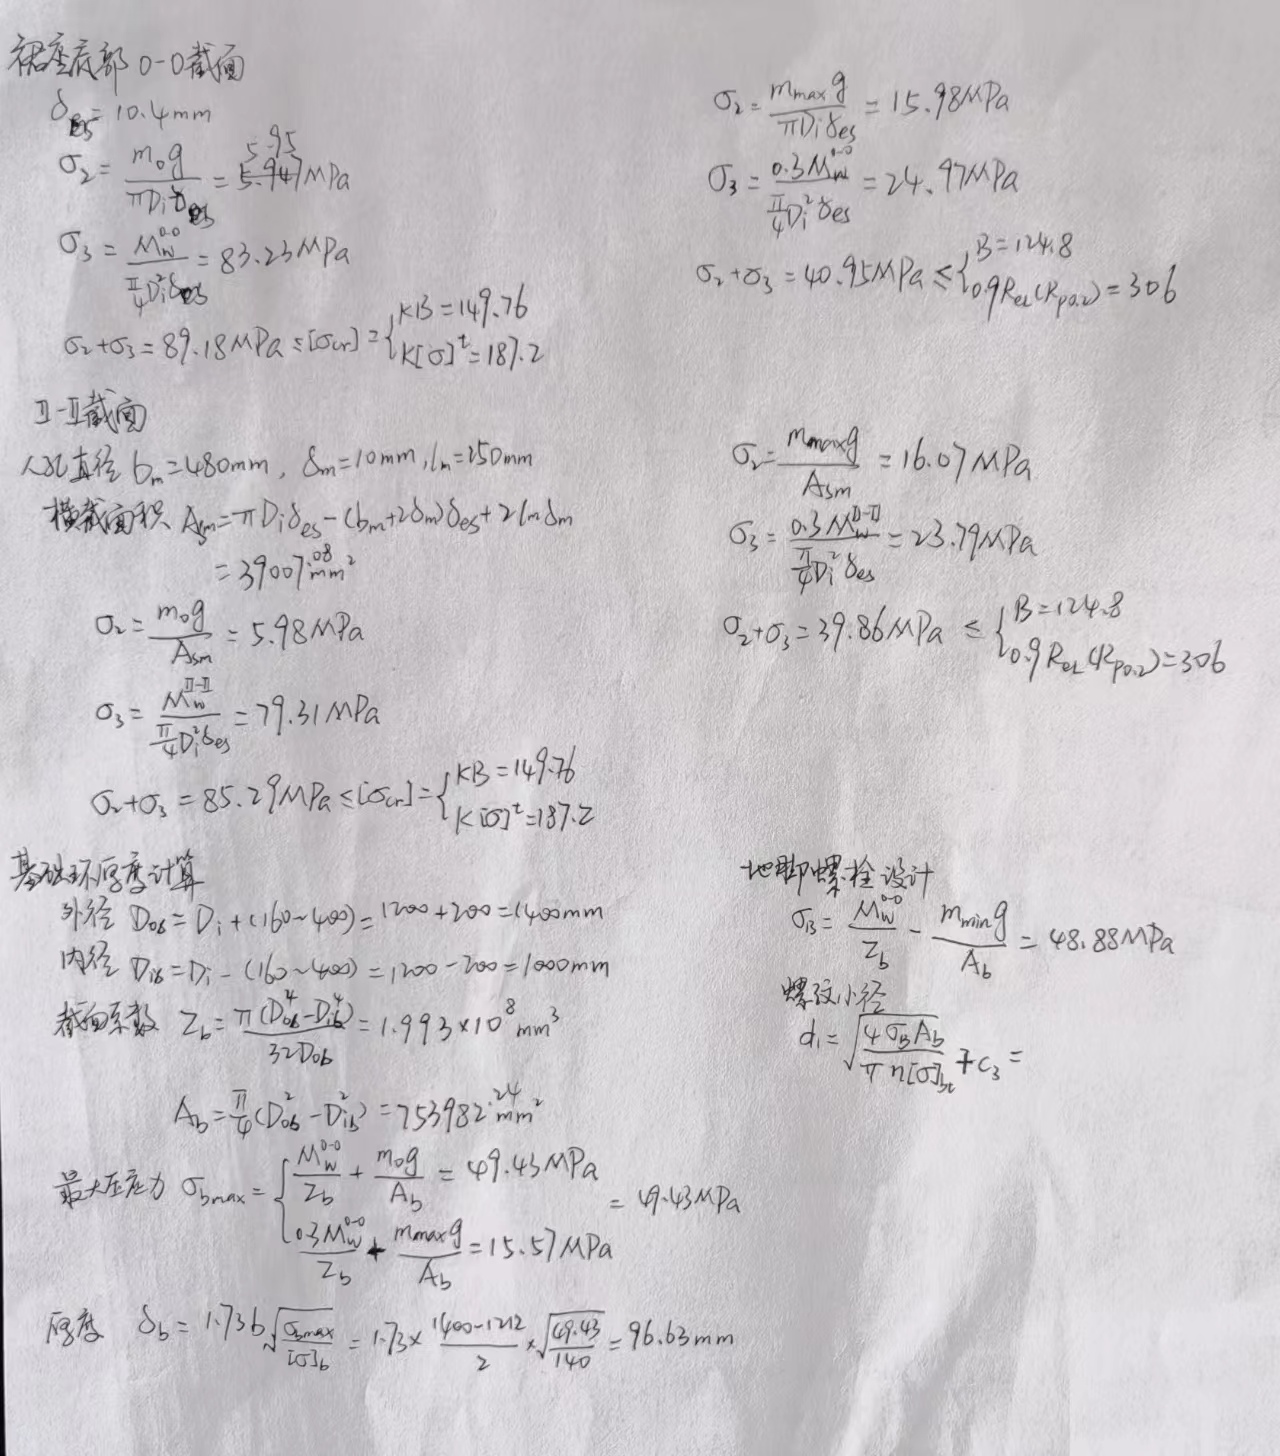 裙座底部 0-0截面
δes = 10.4mm
σ₂ = m₀g / πDᵢδes = 5.95 MPa
σ₃ = Mw⁰⁻⁰ / (π/4 Dᵢ²δes) = 83.23MPa
σ₂+σ₃ = 89.18MPa ≤ [σcr] = { KB = 149.76
K[σ]ᵗ = 187.2
σ₂ = mmax g / πDᵢδes = 15.98MPa
σ₃ = 0.3Mw⁰⁻⁰ / (π/4 Dᵢ²δes) = 24.97MPa
σ₂+σ₃ = 40.95MPa ≤ { B = 124.8
0.9ReL(Rp0.2) = 306
Ⅱ-Ⅱ截面
人孔直径 bm = 480mm, δm = 10mm, lm = 250mm
横截面积 Asm = πDᵢδes - (bm+2δm)δes + 2lmδm
= 39007.08mm²
σ₂ = m₀g / Asm = 5.98MPa
σ₃ = MwⅡ-Ⅱ / (π/4 Dᵢ²δes) = 79.31MPa
σ₂+σ₃ = 85.29MPa ≤ [σcr] = { KB = 149.76
K[σ]ᵗ = 187.2
σ₂ = mmax g / Asm = 16.07MPa
σ₃ = 0.3MwⅡ-Ⅱ / (π/4 Dᵢ²δes) = 23.79MPa
σ₂+σ₃ = 39.86MPa ≤ { B = 124.8
0.9ReL(Rp0.2) = 306
基础环厚度计算
外径 Dob = Dᵢ + (160~400) = 1200+200 = 1400mm
内径 Dib = Dᵢ - (160~400) = 1200-200 = 1000mm
截面系数 Zb = π(Dob⁴-Dib⁴) / 32Dob = 1.993×10⁸mm³
Ab = π/4 (Dob²-Dib²) = 753982.24mm²
最大压应力 σbmax = { Mw⁰⁻⁰/Zb + m₀g/Ab = 49.43MPa
0.3Mw⁰⁻⁰/Zb + mmax g/Ab = 15.57MPa
= 49.43MPa
厚度 δb = 1.73b√(σbmax/[σ]b) = 1.73× (1400-1212)/2 ×√(49.43/140) = 96.63mm
地脚螺栓设计
σB = Mw⁰⁻⁰/Zb - mmin g/Ab = 48.88MPa
螺纹小径
d₁ = √(4σBAb / πn[σ]bt) + C₃ =